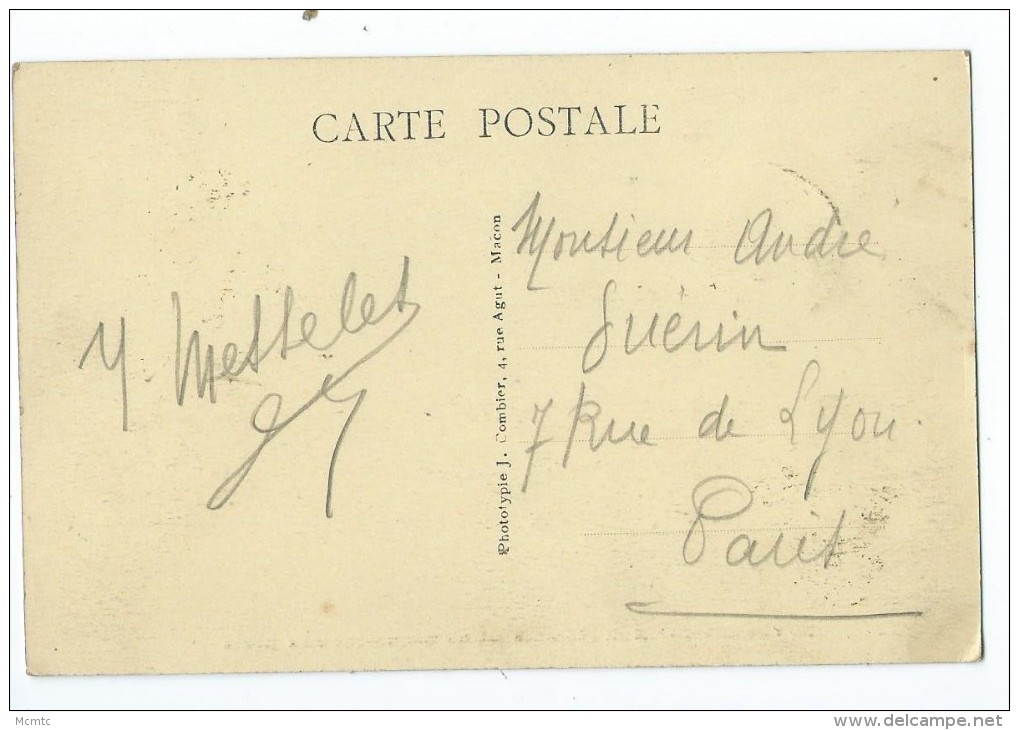 CARTE POSTALE
Y. Messelet
Phototypie J. Combier, 4, rue Agut - Macon
Monsieur André
Guérin
7 Rue de Lyon.
Paris
Mcmtc
www.delcampe.net